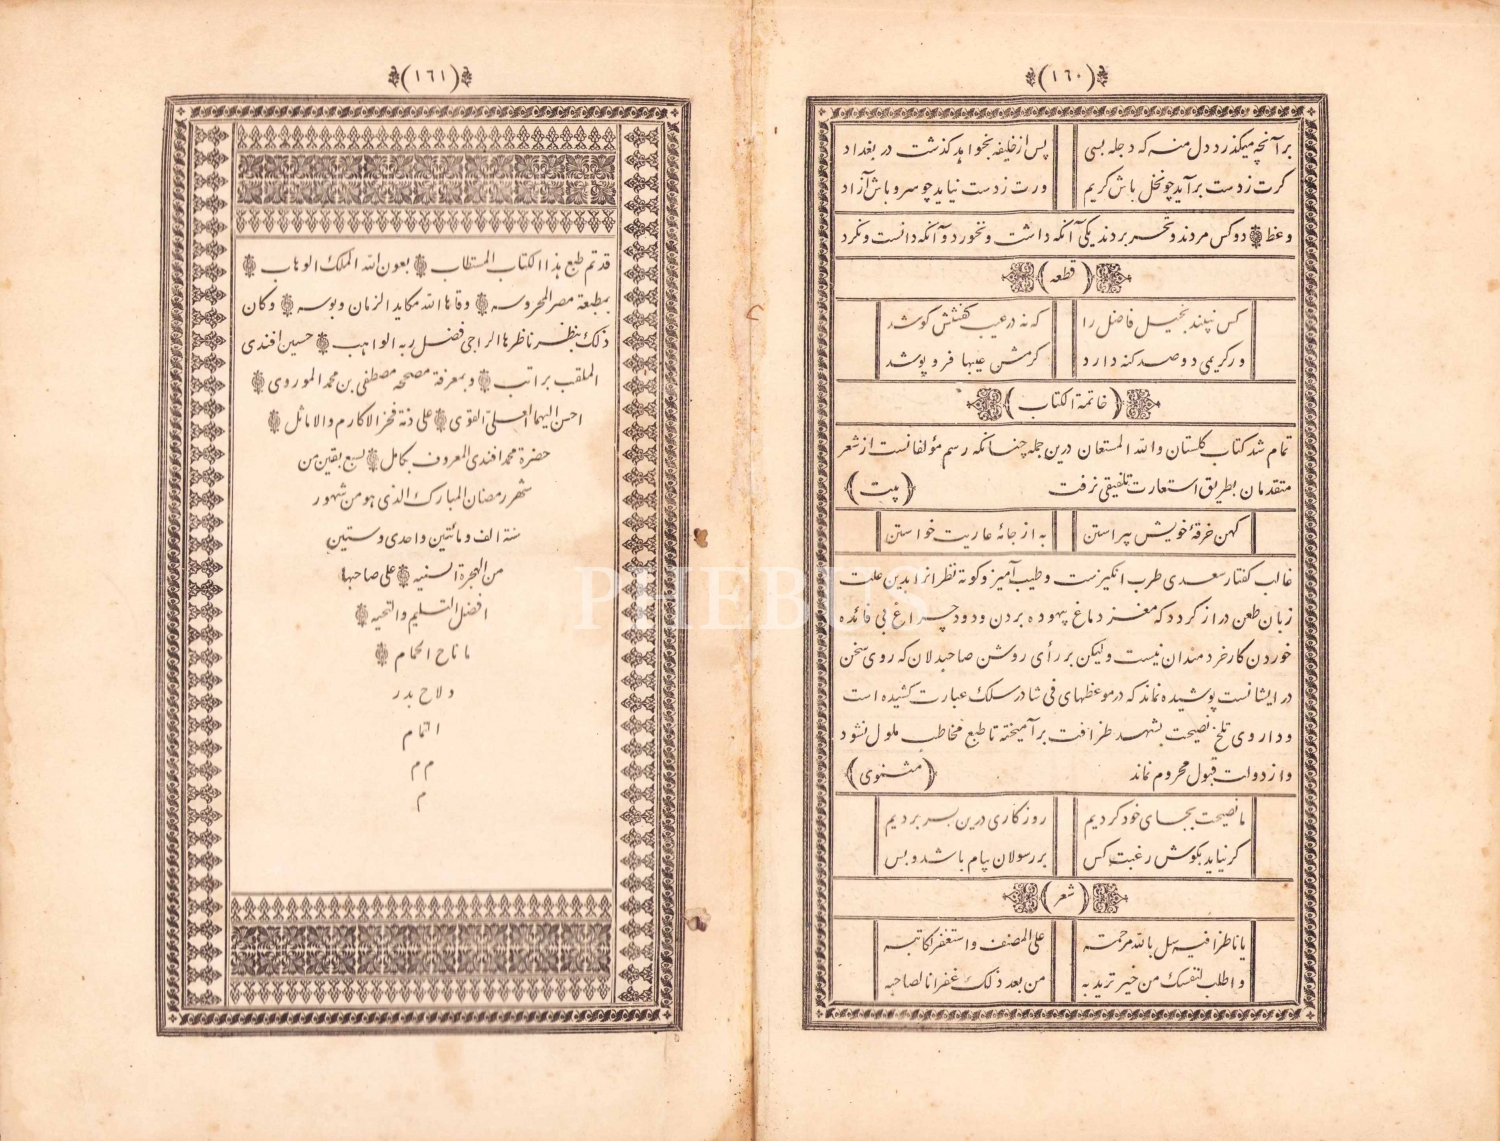 (١٦٠)
بر آنچه میکذرد دل منه که دجله بسی پس از خلیفه بخواهد کذشت در بغداد
کرت ز دست برآید چو نخل باش کریم ورت ز دست نیاید چو سرو باش آزاد
وعظ دو کس مردند و تحسر بردند یکی آنکه داشت و نخورد و آنکه دانست و نکرد
(قطعه)
کس نبیند بخیل فاضل را که نه در عیب کفتنش کوشد
ور کریمی دو صد کنه دارد کرمش عیبها فرو پوشد
(خاتمة الکتاب)
تمام شد کتاب کلستان والله المستعان درین جمله چنانکه رسم مؤلفانست از شعر
متقدمان بطریق استعارت تلفیقی نرفت (بیت)
کهن خرقهٔ خویش پیراستن به از جامهٔ عاریت خواستن
غالب کفتار سعدی طرب انکیزست وطیب آمیز و کوته نظرانرا بدین علت
زبان طعن دراز کردد که مغز دماغ بیهوده بردن ودود چراغ بی فائده
خوردن کار خردمندان نیست ولیکن بر رأی روشن صاحبدلان که روی سخن
در ایشانست پوشیده نماند که در موعظهای شافی در سلک عبارت کشیده است
وداروی تلخ نصیحت بشهد ظرافت بر آمیخته تا طبع مخاطب ملول نشود
واز دولت قبول محروم نماند (مثنوی)
ما نصیحت بجای خود کردیم روزکاری درین بسر بردیم
کر نیاید بکوش رغبت کس بر رسولان پیام باشد وبس
(شعر)
یا ناظرا فیه سل بالله مرحمة علی المصنف واستغفر لکاتبه
واطلب لنفسک من خیر ترید به من بعد ذلک غفرانا لصاحبه
(١٦١)
قد تم طبع هذا الکتاب المستطاب بعون الله الملک الوهاب
بمطبعة مصر المحروسه وقاها الله مکاید الزمان وبوسه وکان
ذلک بنظر ناظرها الراجی فضل ربه الواهب حسین افندی
الملقب براتب وبمعرفة مصححه مصطفی بن محمد الموروی
احسن الیهما العلی القوی علی ذمة فخر الاکارم والاماثل
حضرة محمد افندی المعروف بکامل لسبع بقین من
شهر رمضان المبارک الذی هو من شهور
سنة الف ومائتین واحدی وستین
من الهجرة السنیه علی صاحبها
افضل التسلیم والتحیه
ما ناح الحمام
ولاح بدر
التمام
م م
م
PHEBUS